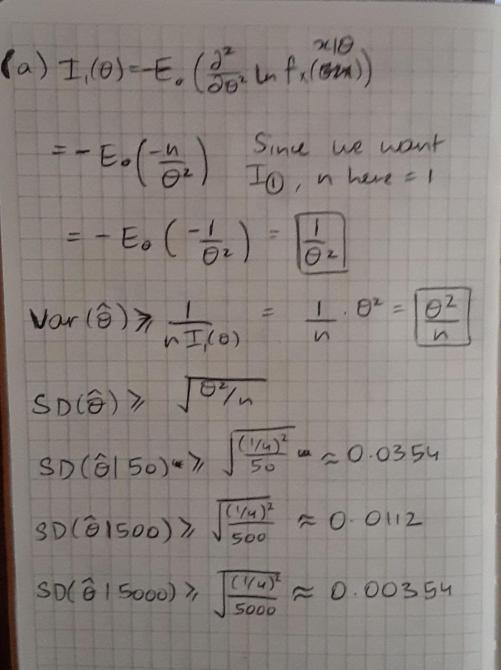 (a) I₁(θ)=-E₀(∂²/∂θ² ln fₓ(x|θ))
= -E₀(-n/θ²) Since we want
I①, n here = 1
= -E₀(-1/θ²) = 1/θ²
Var(θ̂) ⩾ 1/(n I₁(θ)) = 1/n · θ² = θ²/n
SD(θ̂) ⩾ √(θ²/n)
SD(θ̂|50) ⩾ √((1/4)²/50) ≈ 0.0354
SD(θ̂|500) ⩾ √((1/4)²/500) ≈ 0.0112
SD(θ̂|5000) ⩾ √((1/4)²/5000) ≈ 0.00354